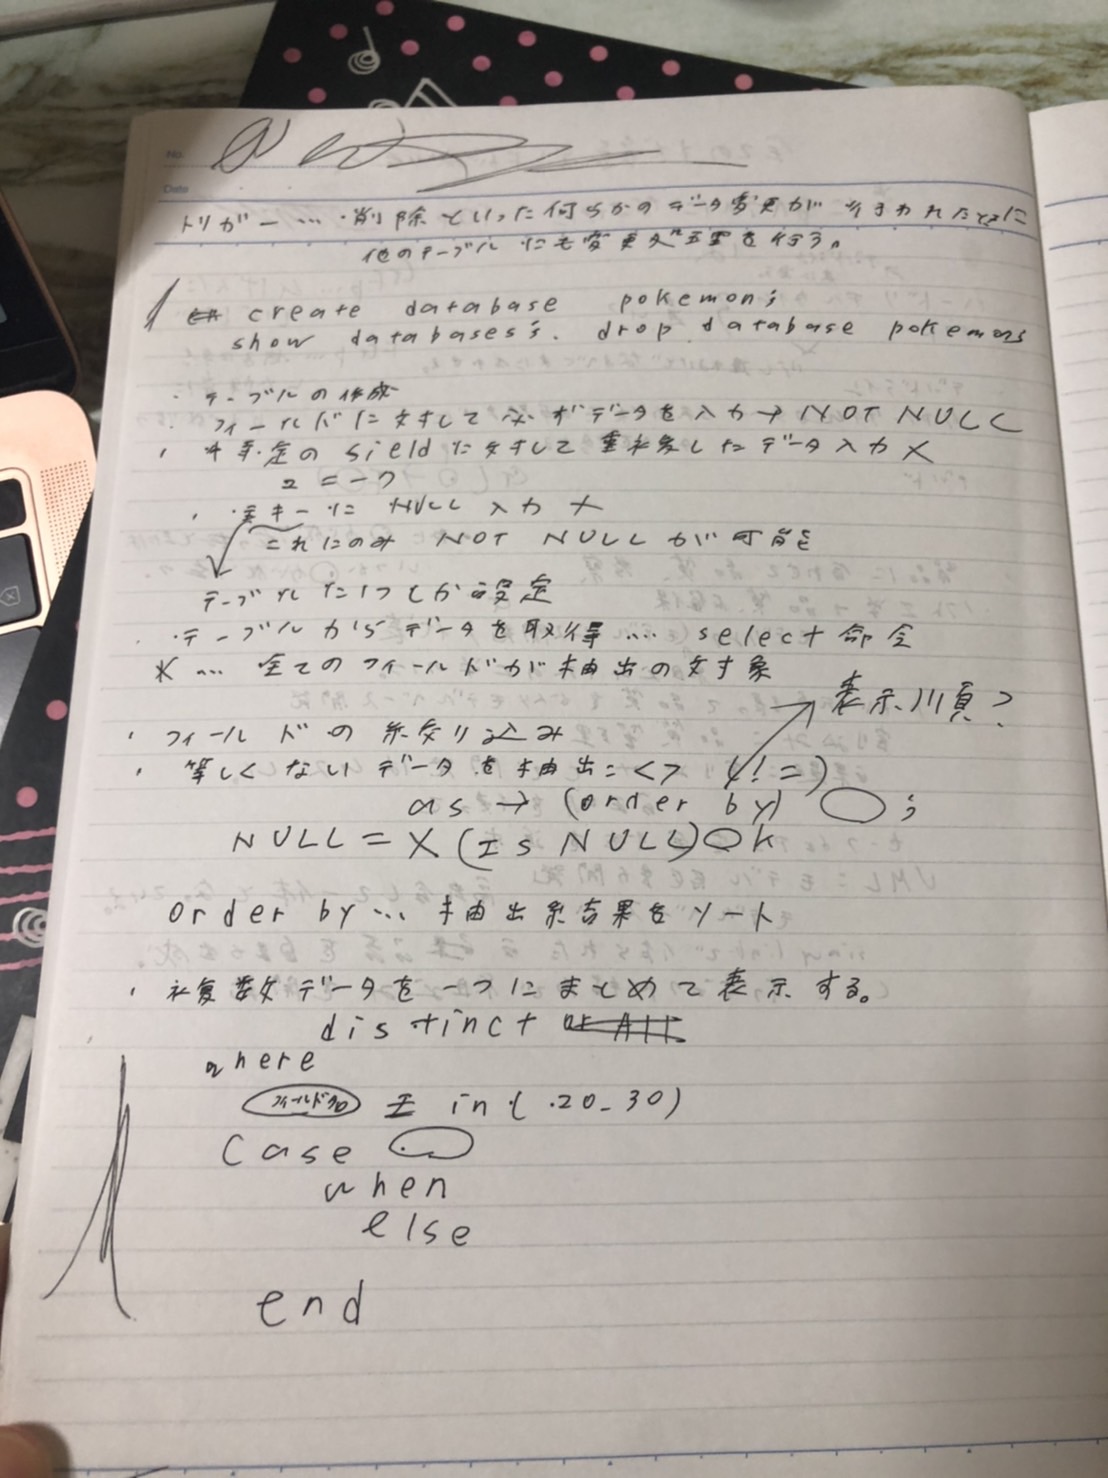 No.
Date
トリガー … ・削除といった何らかのデータ変更が 行われたときに
他のテーブルにも変更処理を行う。
create database pokemon;
show databases; drop database pokemon;
・テーブルの作成
・フィールドに対して必ずデータを入力→ NOT NULL
・特定のfieldに対して重複したデータ入力×
ユニーク
・主キーに NULL 入力 ×
これにのみ NOT NULL が可能
テーブルに1つしか設定
・テーブルからデータを取得 … select 命令
* … 全てのフィールドが抽出の対象
表示順?
・フィールドの絞り込み
・等しくないデータを抽出:<> (!=)
as → (order by) ◯ ;
NULL = × (Is NULL) OK
order by … 抽出結果をソート
・複数データを一つにまとめて表示する。
distinct
where
フィールド名 in ( 20-30)
case
when
else
end